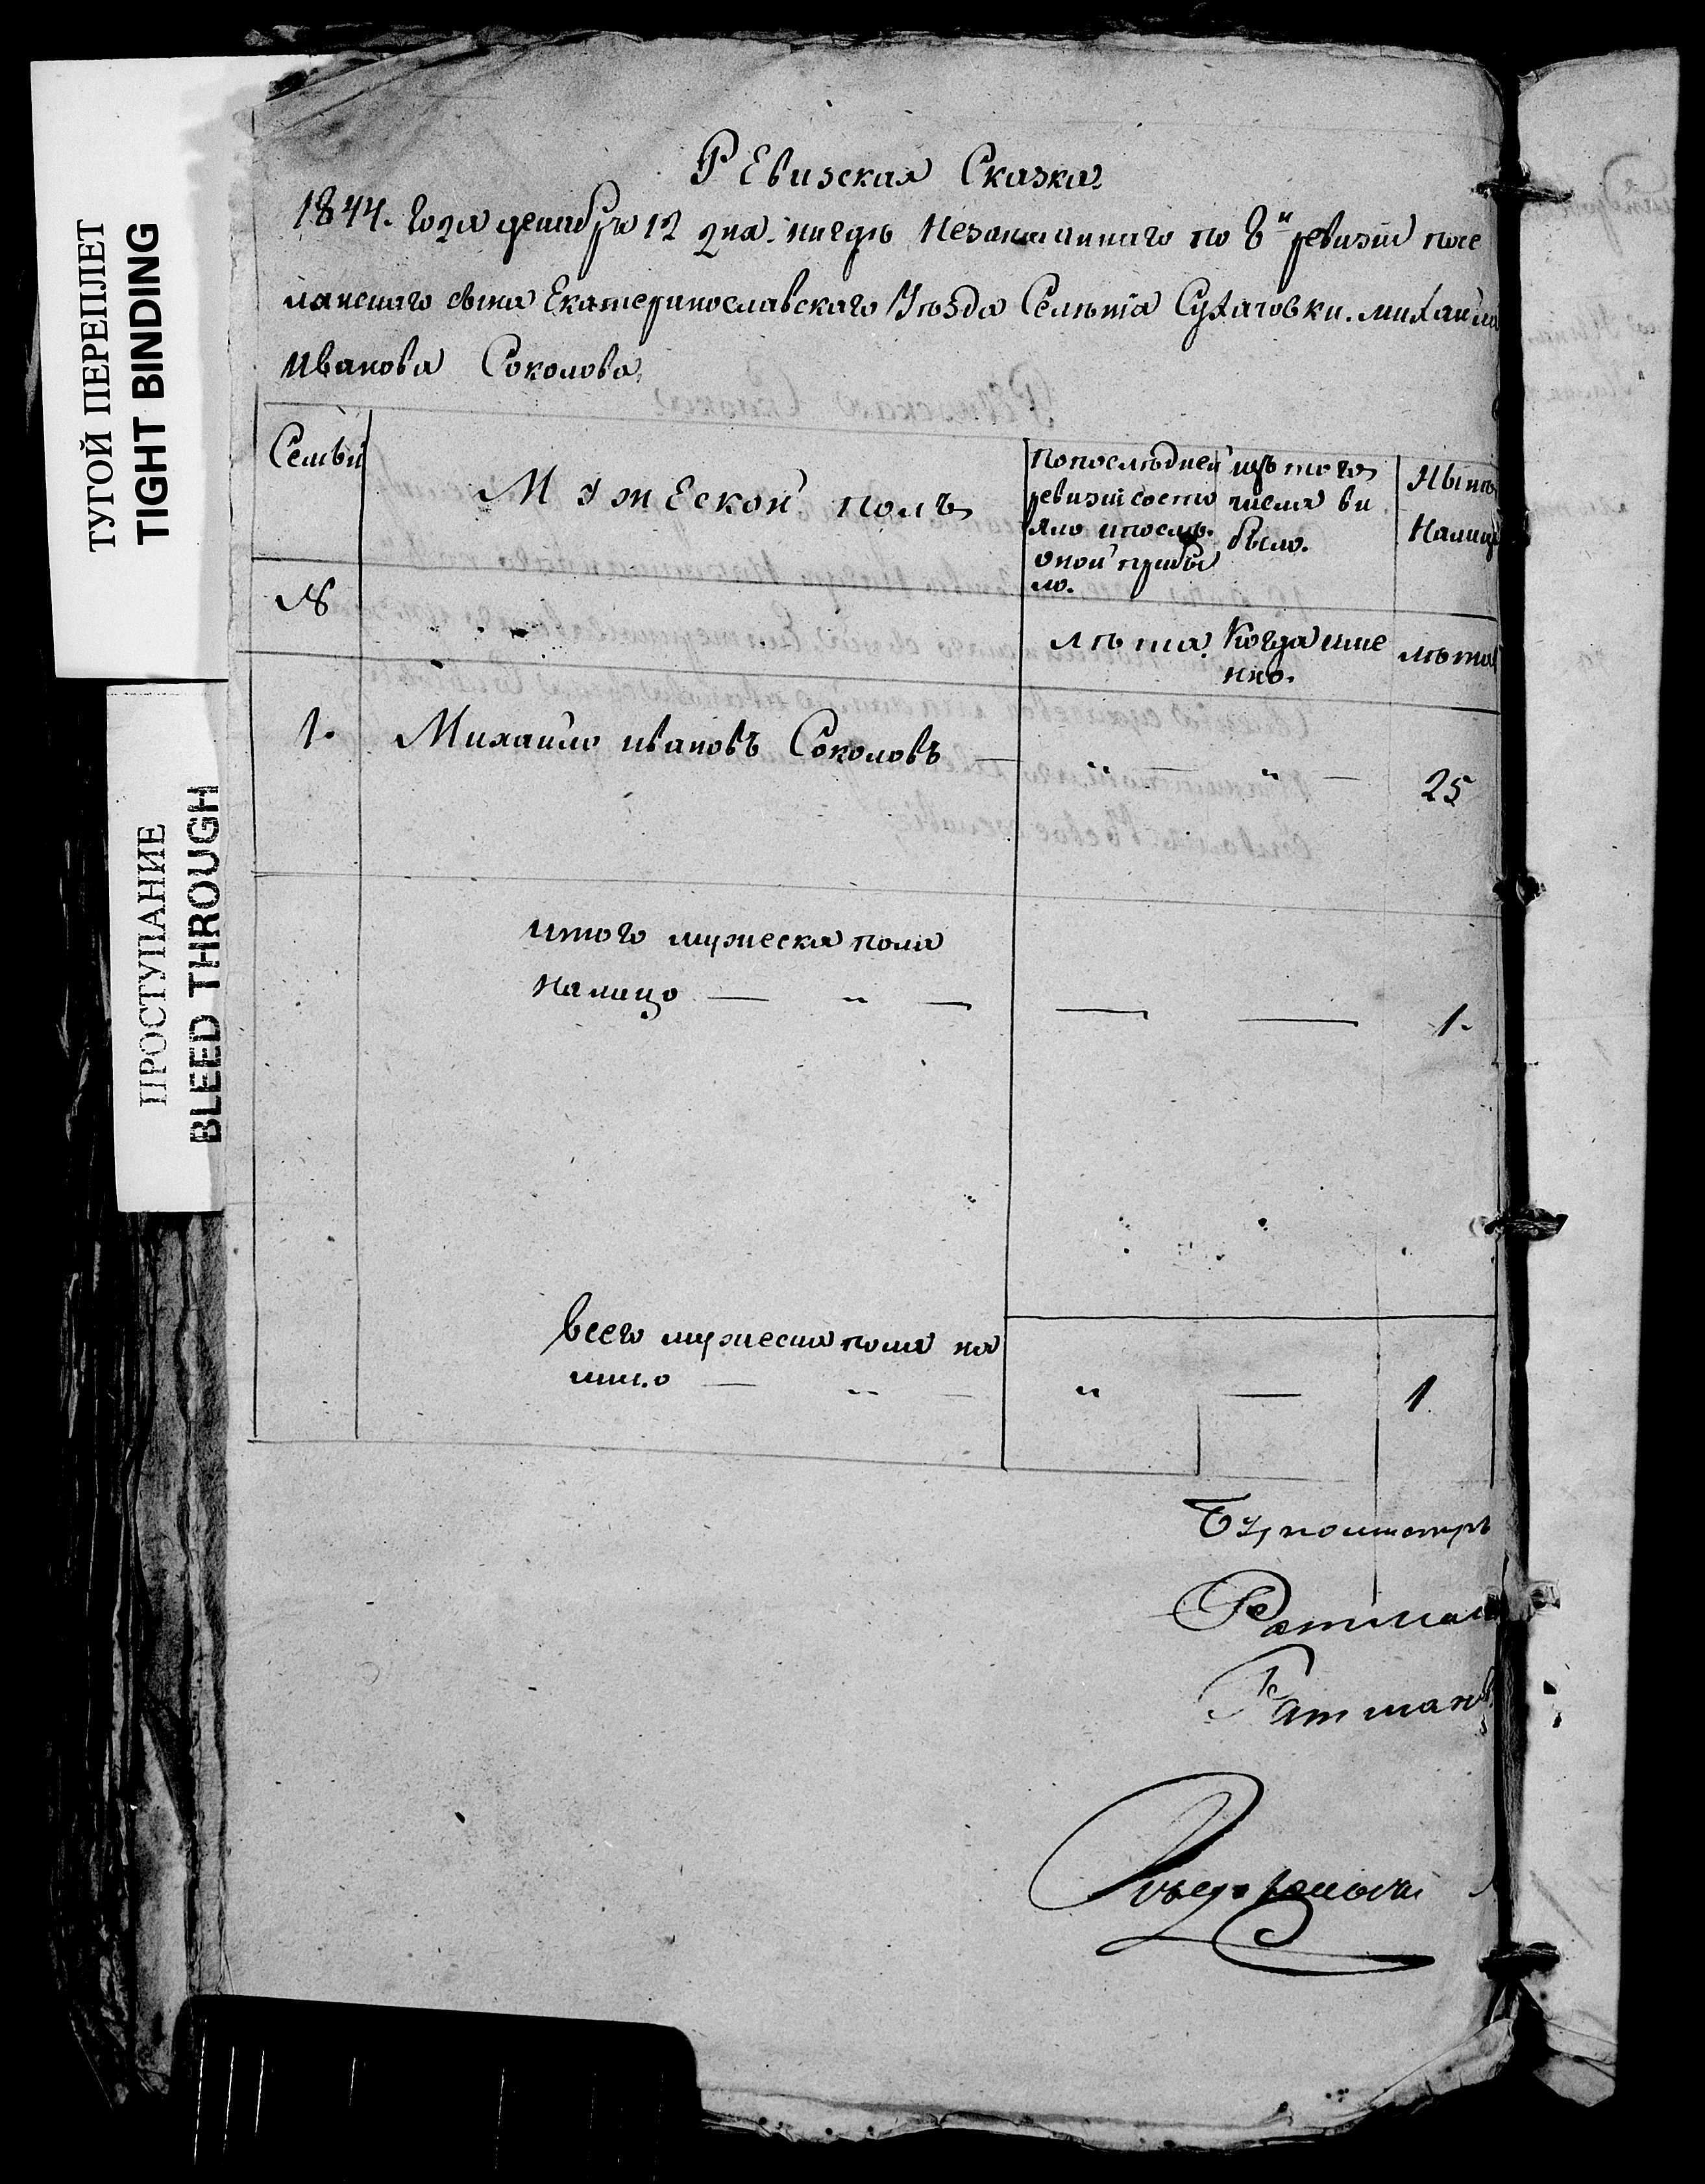 ТУГОЙ ПЕРЕПЛЕТ
TIGHT BINDING
ПРОСТУПАНИЕ
BLEED THROUGH
Ревизская Сказка
1844. Года декабря 12 дня. нигде Незаписаннаго по 8й ревизіи посе
лянскаго сына Екатеринославскаго Уѣзда Селѣнія Сухачовки. михаила
Иванова Соколова,
Семьи
Мужеской полъ
Попослѣдней
ревизіи состо
яло ипослѣ.
оной прибы
ло.
изъ того
числа вы
было.
Нынѣ
Налицо
№
Лѣта.
Когда име
нно.
лѣта
1. Михайло ивановъ Соколовъ — " — " — 25
итого мужеска пола
налицо — " — — — 1.
Всего мужеска пола на
лицо — " — " — 1
Бургомистръ
Ратман
Ратманъ